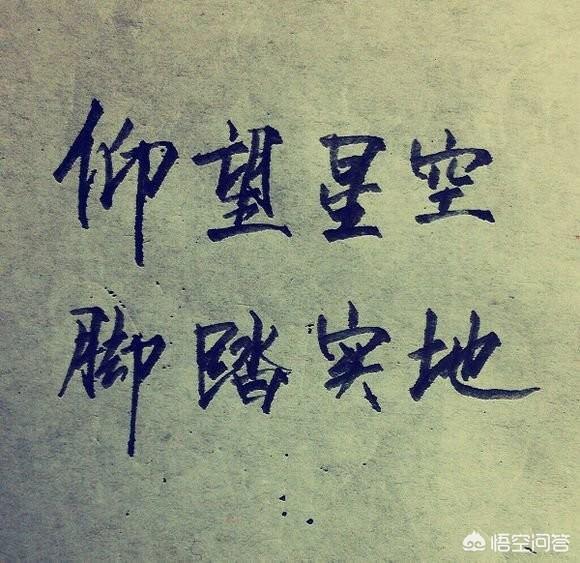 仰望星空
脚踏实地
悟空问答